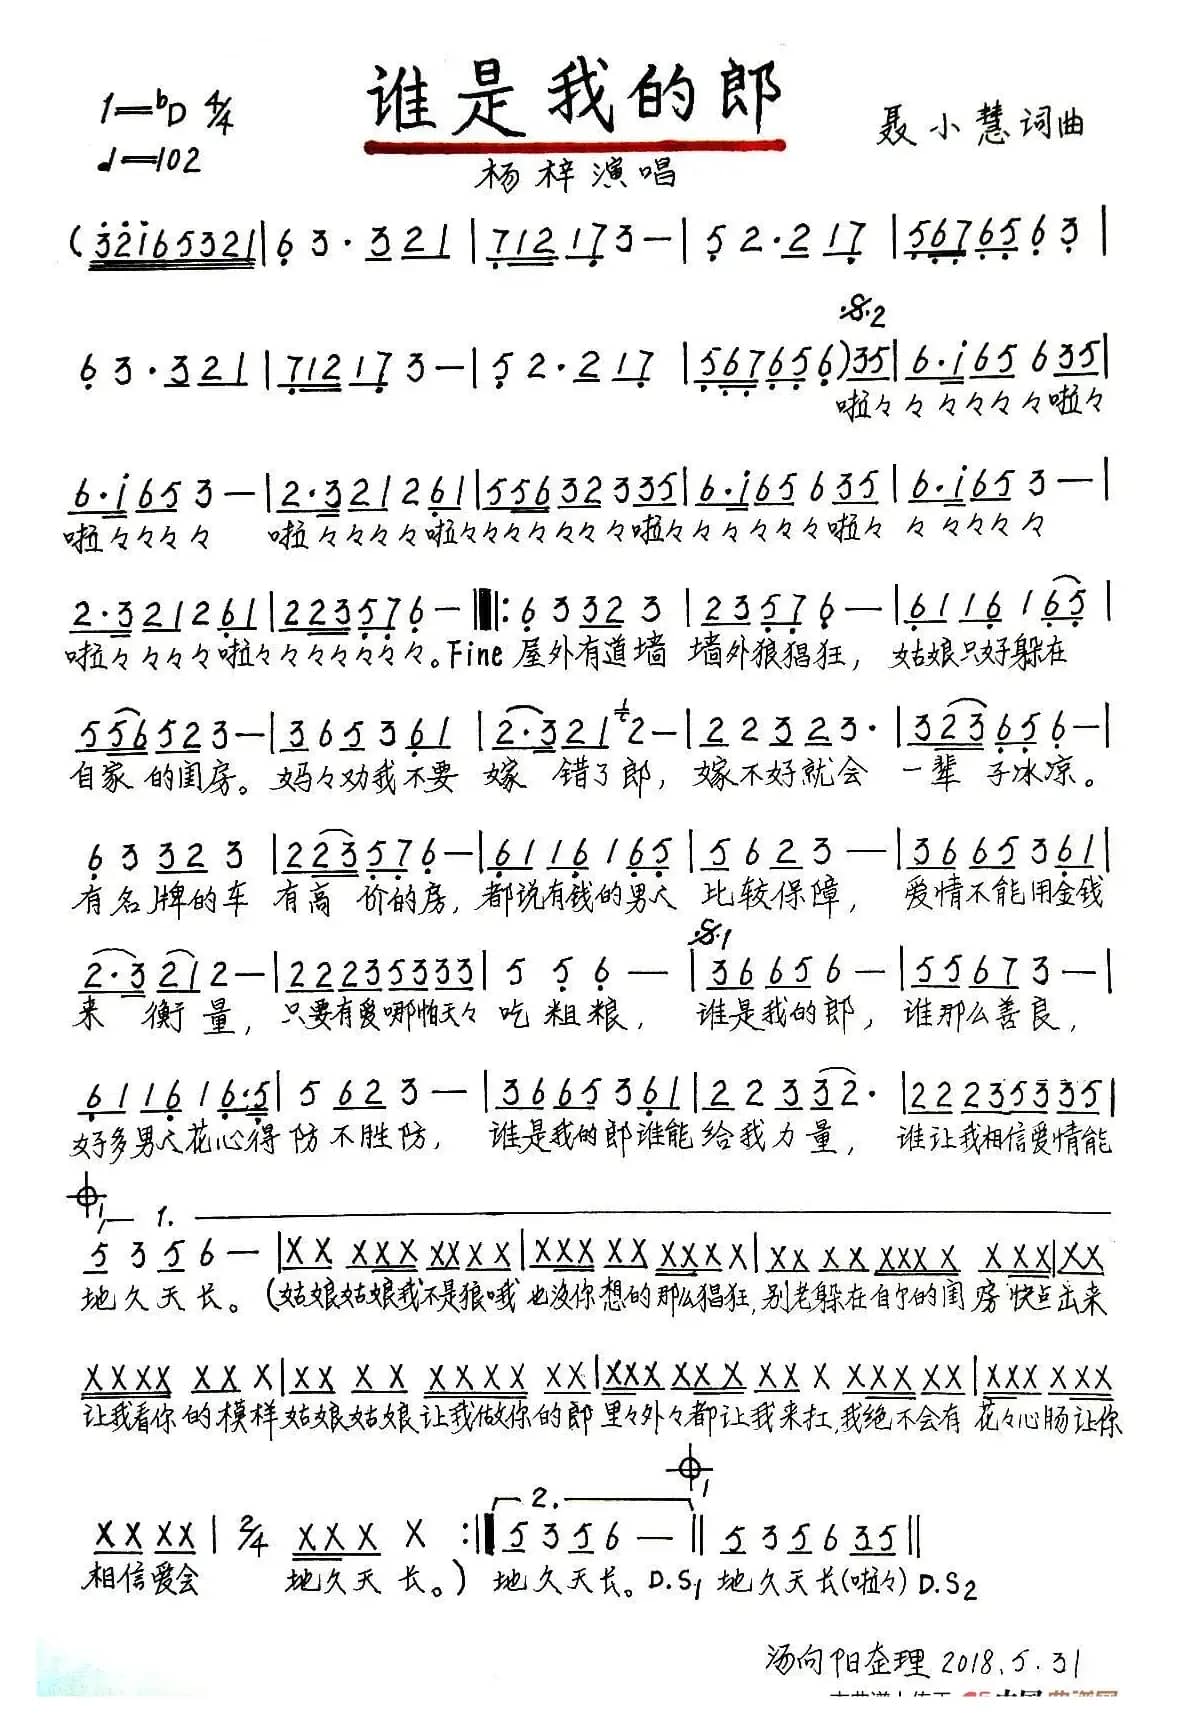 谁是我的郎
1=♭D 4/4
聂小慧词曲
♩=102
杨梓演唱
(3̇2̇1̇65321|6 3·321|712173—|52·217|5676563|
𝄋2
63·321|712173—|52·217|567656)35|6·1̇65 635|
啦々々々々々々啦々
6·1̇653—|2·321261|556323335|6·1̇65 635|6·1̇653—|
啦々々々々 啦々々々々啦々々々々々々々啦々々々々々々啦々 々々々々々
2·321261|223576—‖:63323|235 76—|6116165|
啦々々々々啦々々々々々々々。Fine 屋外有道墙 墙外狼猖狂，姑娘只好躲在
556523—|365361|2·3212—|223 23·|323656—|
自家的闺房。妈々劝我不要 嫁 错了郎，嫁不好就会 一辈 子冰凉。
633 23|223576—|6116165|5623—|3665361|
有名牌的车 有高 价的房，都说有钱的男人 比较保障，爱情不能用金钱
𝄋1
2·3212—|222353333|5 5 6—|36656—|55673—|
来 衡量，只要有爱哪怕天々吃粗粮，谁是我的郎，谁那么善良，
611616·5|5623—|3665361|22332·|22235335|
好多男人花心得 防不胜防， 谁是我的郎谁能给我力量， 谁让我相信爱情能
1.
5356—|XX XXX XXXX|XXX XX XXXX|XX XX XXX X XXX|XX
地久天长。(姑娘姑娘我不是狼哦 也没你想的那么猖狂,别老躲在自你的闺房 快点出来
XXXX XX X|XX XX XXXX XX|XXX XXX XX X XXX XX|XXX XXX
让我看你的模样 姑娘姑娘让我做你的郎 里々外々都让我来扛,我绝不会有 花々心肠让你
2.
XX XX|2/4 XXX X :‖5356—‖535635‖
相信爱会 地久天长。)地久天长。D.S1 地久天长(啦々)D.S2
汤向阳整理 2018.5.31